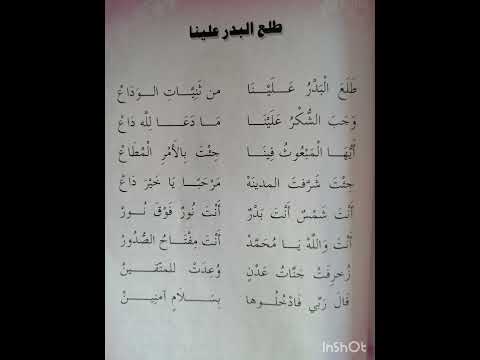 طلع البدر علينا
طَلَعَ الْبَدْرُ عَلَيْنَا من ثَنِيَّاتِ الوَدَاعْ
وَجَبَ الشُّكْرُ عَلَيْنَا مَا دَعَا لِلَّه دَاعْ
أَيُّهَا الْمَبْعُوثُ فِينَا جِئْتَ بِالأَمْرِ الْمُطَاعْ
جِئْتَ شَرَّفتَ المدينَهْ مَرْحَبًا يَا خَيْرَ دَاعْ
أَنْتَ شَمْسٌ أَنْتَ بَدْرٌ أَنْتَ نُورٌ فَوْقَ نُورْ
أَنْتَ وَاللَّهْ يَا مُحَمَّدْ أَنْتَ مِفْتَاحُ الصُّدُورْ
زُخرِفَتْ جَنَّاتُ عَدْنٍ وُعِدَتْ للمتَّقينْ
قَالَ رَبِّي فَادْخُلُوها بِسَلَامٍ آمنِينْ
InShOt